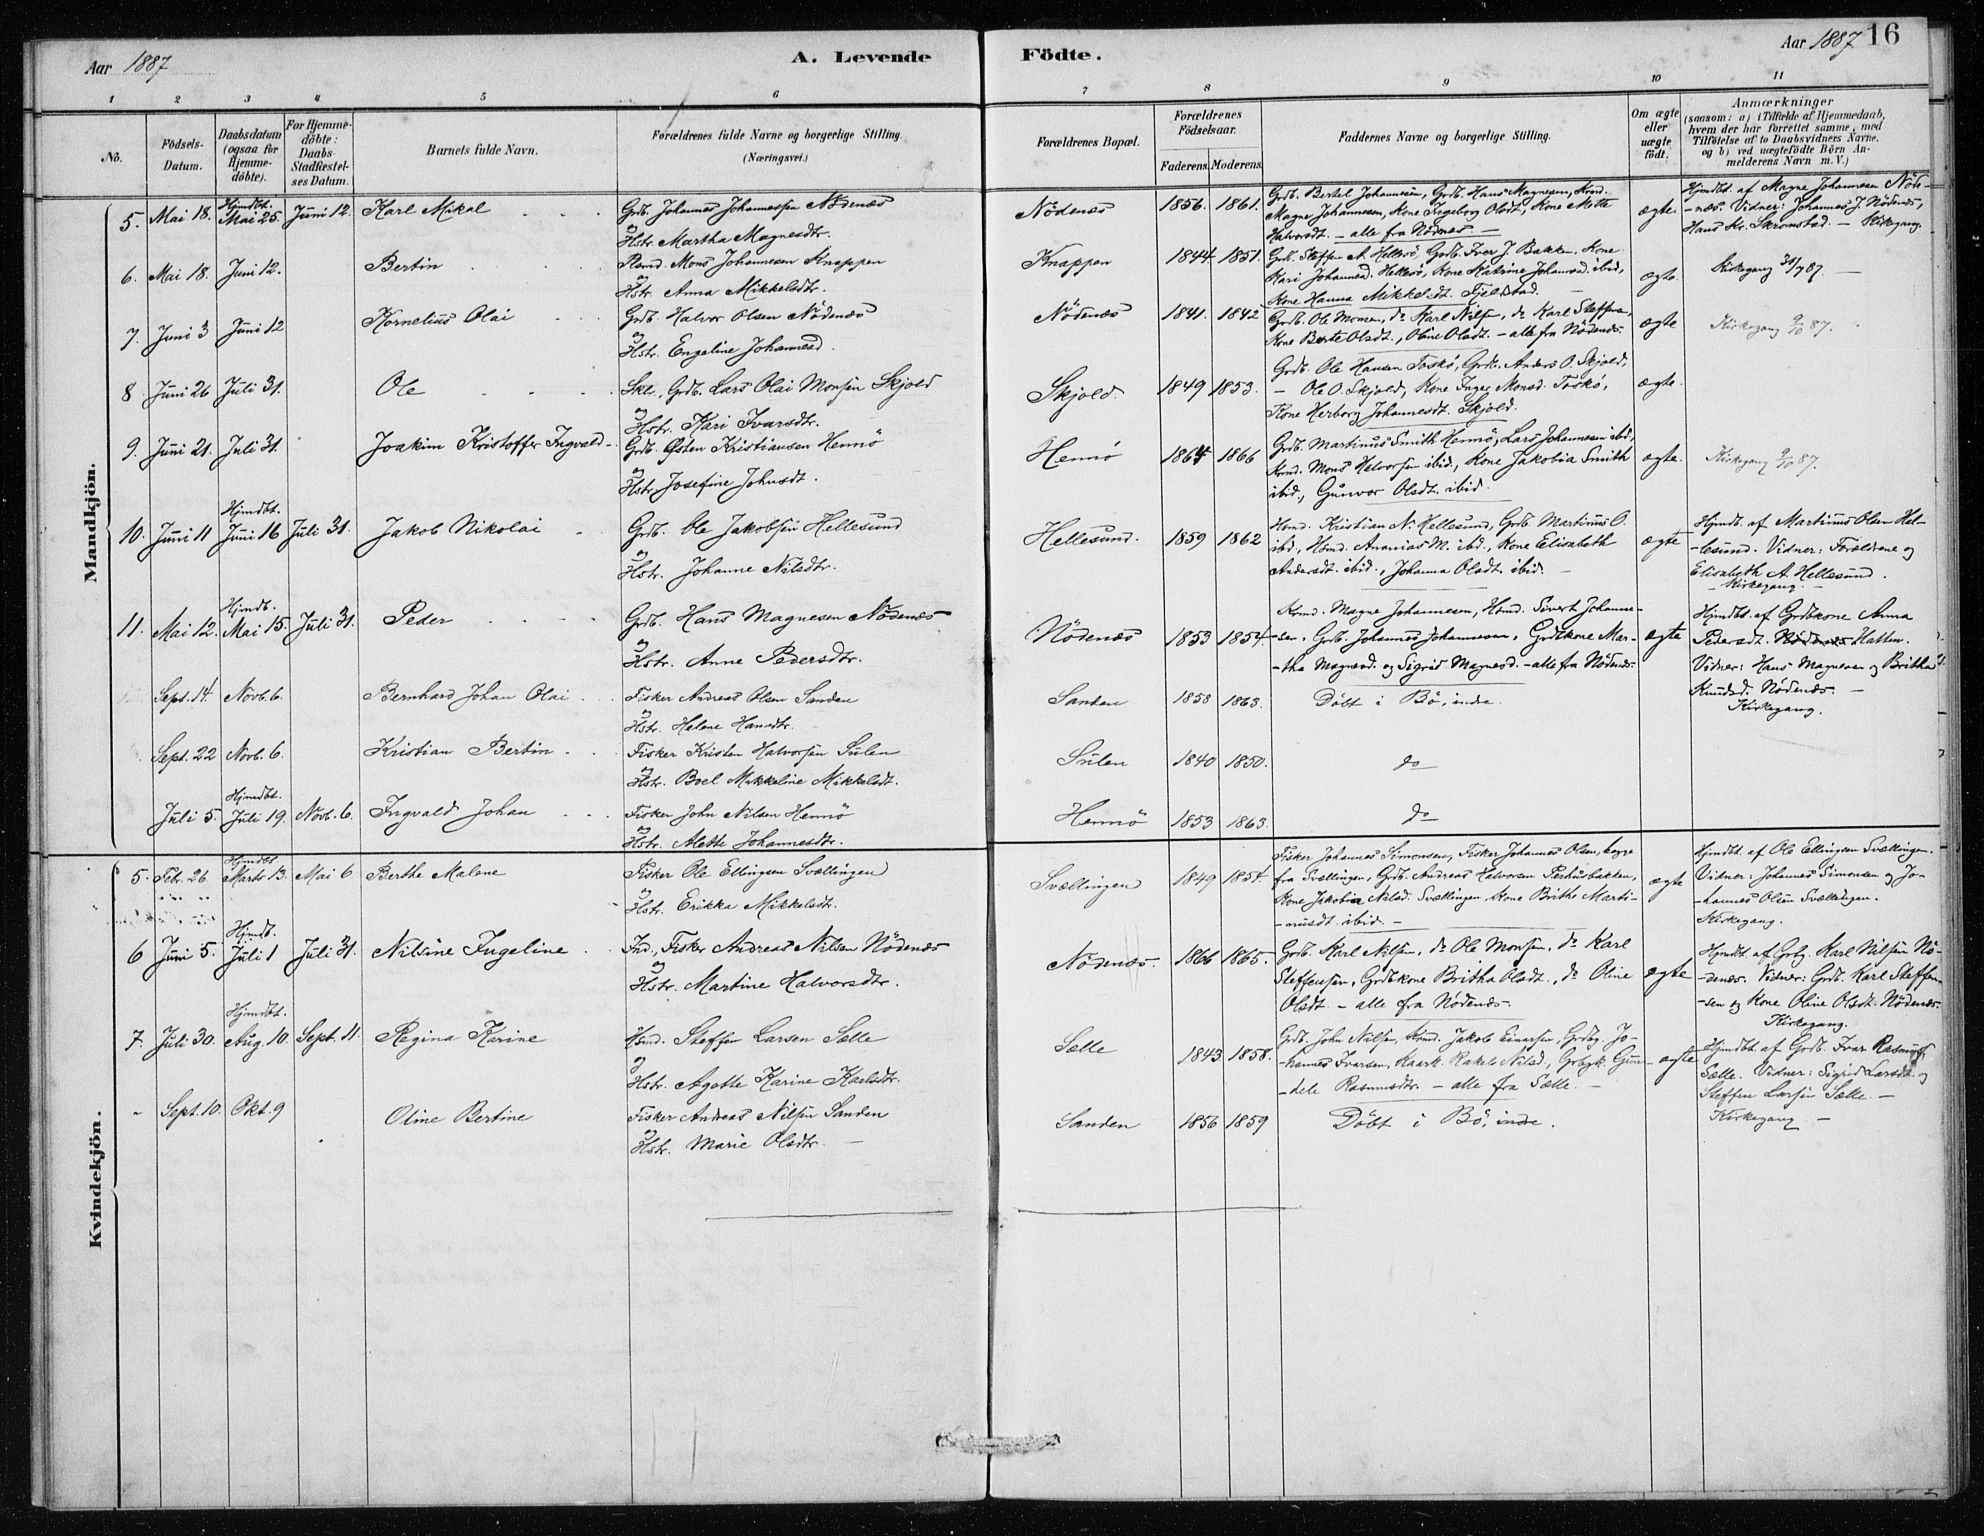 Aar 1887
A. Levende
Födte.
Aar 1887
16
1 2 3 4 5 6 7 8 9 10 11
No.
Födsels-Datum.
Daabsdatum (ogsaa for Hjemmedöbte).
For Hjemmedöbte: Daabs Stadfæstelses Datum.
Barnets fulde Navn.
Forældrenes fulde Navne og borgerlige Stilling. (Næringsvei.)
Forældrenes Bopæl.
Forældrenes Födselsaar.
Faderens. Moderens.
Faddernes Navne og borgerlige Stilling.
Om ægte eller uægte födt.
Anmærkninger
(saasom: a) i Tilfælde af Hjemmedaab, hvem der har forrettet samme, med Tilföielse af to Daabsvidners Navne, og b) ved uægtefödte Börn Anmelderens Navn m. V.)
Mandkjön.
5. Mai 18. Hjmdbt. Mai 25. Juni 12. Karl Mikal
Grdb. Johannes Johannessen Nödenæs
og
Hstr. Martha Magnesdtr.
Nödenæs 1856. 1861.
Grdb. Bertel Johannesen, Grdb. Hans Magnesen, Kvnd.
Magne Johannesen, Kone Ingeborg Olsdt, Kone Mette
Halvorsdt. – alle fra Nödenæs –
ægte.
Hjmdbt. af Magne Johannesen Nöde-
-næs. Vidner: Johannes J. Nödenæs,
Hans Kr. Skromstad. – Kirkegang.
6. Mai 18. Juni 12. Bertin
Mons Johannesen Knappen
Hstr. Anna Mikkelsdtr.
Knappen 1844 1851.
Grb. Steffen A. Hellesö, Grdb. Iver J. Bakken, Kone
Kari Johannesd. Hellesö, Kone Katrine Johannesd. ibid,
Kone Hanna Mikkelsdt. Fjeldstad. –
ægte.
Kirkegang 31/7 87. –
7. Juni 3 Juni 12 Kornelius Olai
Grdb. Halvor Olsen Nödenæs
og
Hstr. Engeline Johannesd.
Nödenæs 1841. 1842
Grdb. Ole Monsen, do Karl Nilsen, do Karl Steffens.,
Kone Berte Olsdt., Oline Olsdt. – alle fra Nödenæs.
ægte
Kirkegang 9/10 87.
8 Juni 26 Juli 31. Ole
Skl., Grdb. Lars Olai Monsen Skjold
og
Hstr. Kari Ivarsdtr.
Skjold. 1849 1853.
Grdb. Ole Hansen Toskö, Grdb. Anders O. Skjold,
– Ole O. Skjold, Kone Inger Monsd. Toskö,
Kone Herborg Johannesdt. Skjold.
ægte.
9. Juni 21. Juli 31. Joakim Kristoffer Ingvald
Grdb. Østen Kristiansen Hennö
og
Hstr. Josefine Johnsdt.
Hennö 1864 1866
Grdb. Martinus Smith Hennö, Lars Johannesen ibid,
Kvnd. Mons Halvorsen ibid., Kone Jakobia Smith
ibid., Gunvor Olsdt. ibid.
ægte.
Kirkegang 9/10 87.
10. Juni 11 Hjmdbt. Juni 16 Juli 31. Jakob Nikolai
Grdb. Ole Jakobsen Hellesund
og
Hstr. Johanne Nilsdtr.
Hellesund. 1859 1862
Hsmd. Kristian N. Hellesund, Grdb. Martinus O.
ibd., Hsmd. Ananias M. ibd., Kone Elisabeth
Andersdt. ibid., Johanna Olsdt. ibid. –
ægte
Hjmdbt. af Martinus Olsen Hel-
-lesund. Vidner: Forældrene og
Elisabeth A. Hellesund.
– Kirkegang. –
11. Mai 12. Hjmdbt. Mai 15. Juli 31. Peder
Grdb. Hans Magnesen Nödenæs
og
Hstr. Anne Pedersdtr.
Nödenæs 1853 1854.
Kvnd. Magne Johannesen, Hsmd. Sivert Johanne-
-sen, Grdb. Johannes Johannesen, Grdtkone Mar-
-tha Magnesd. og Sigrid Magnesd. – alle fra Nödenæs.
ægte
Hjmdbt af Grdtkone Anna
Pedersdt. Nödenæs Hatten.
Vidner: Hans Magnesen og Britha
Knudsd. Nödenæs. –
Kirkegang.
Sept. 14. Novb. 6. Bernhard Johan Olai
Fisker Andreas Olsen Sanden
og
Hstr. Helene Hansdtr.
Sanden 1858 1863.
Döbt i Bö, indre.
Sept. 22 Novb. 6. Kristian Bertin
Fisker Kristen Halvorsen Sulen
og
Hstr. Boel Mikkeline Mikkelsdt.
Sulen 1840 1850.
do
Juli 5. Hjmdbt. Juli 19. Novb. 6. Ingvald Johan
Fisker John Nilsen Hennö
og
Hstr. Alette Johannesdtr.
Hennö 1853 1863.
do
Kvindekjön.
5. Febr. 26 Hjmdbt Marts 13. Mai 6 Berthe Malene
Fisker Ole Ellingsen Svællingen
og
Hstr. Erikka Mikkelsdt.
Svællingen 1849 1854.
Fisker Johannes Simonsen, Fisker Johannes Olsen, begge
fra Svællingen, Grdb. Andreas Halvorsen Pershusbakken,
Kone Jakobia Nilsd. Svællingen, Kone Brithe Marti-
-nusdt ibid. –
ægte
Hjmdbt. af Ole Ellingsen Svællingen.
Vidner: Johannes Simonsen og Jo-
-hannes Olsen Svællingen.
Kirkegang.
6 Juni 5. Hjmdt. Juli 1 Juli 31. Nilsine Ingeline
Ind., Fisker Andreas Nilsen Nödenæs
og
Hstr. Martine Halvorsdtr.
Nödenæs. 1866 1865.
Grdb. Karl Nilsen, do Ole Monsen, do Karl
Steffensen, Grdtkone Britha Olsdt., do Oline
Olsdt – alle fra Nödenæs.
ægte
Hjmdbt. af Grbg. Karl Nilsen Nö-
-denæs. Vidner: Grdb. Karl Steffen-
-sen og Kone Oline Olsdt. Nödenæs.
Kirkegang.
7. Juli 30. Hjmdbt. Aug. 10. Sept. 11. Regina Karine
Hsmd. Steffen Larsen Sælle
og
Hstr. Agette Karine Karlsdtr.
Sælle 1843 1858.
Grdb. John Nilsen, Kvnd. Jakob Einersen, Grdbg. Jo-
hannes Ivarsen, Kaark. Rakele Nilsd., Grbgk. Gun-
-dele Rasmusdtr. – alle fra Sælle. –
ægte
Hjmdbt. af Grdb. Ivar Rasmuss.
Sælle. Vidner: Sigrid Larsdt. og
Steffen Larsen Sælle. –
Kirkegang –
" Sept. 10. Okt. 9 Oline Bertine
Fisker Andreas Nilsen Sanden
og
Hstr. Marie Olsdtr. –
Sanden 1856 1859
Döbt i Bö, indre.